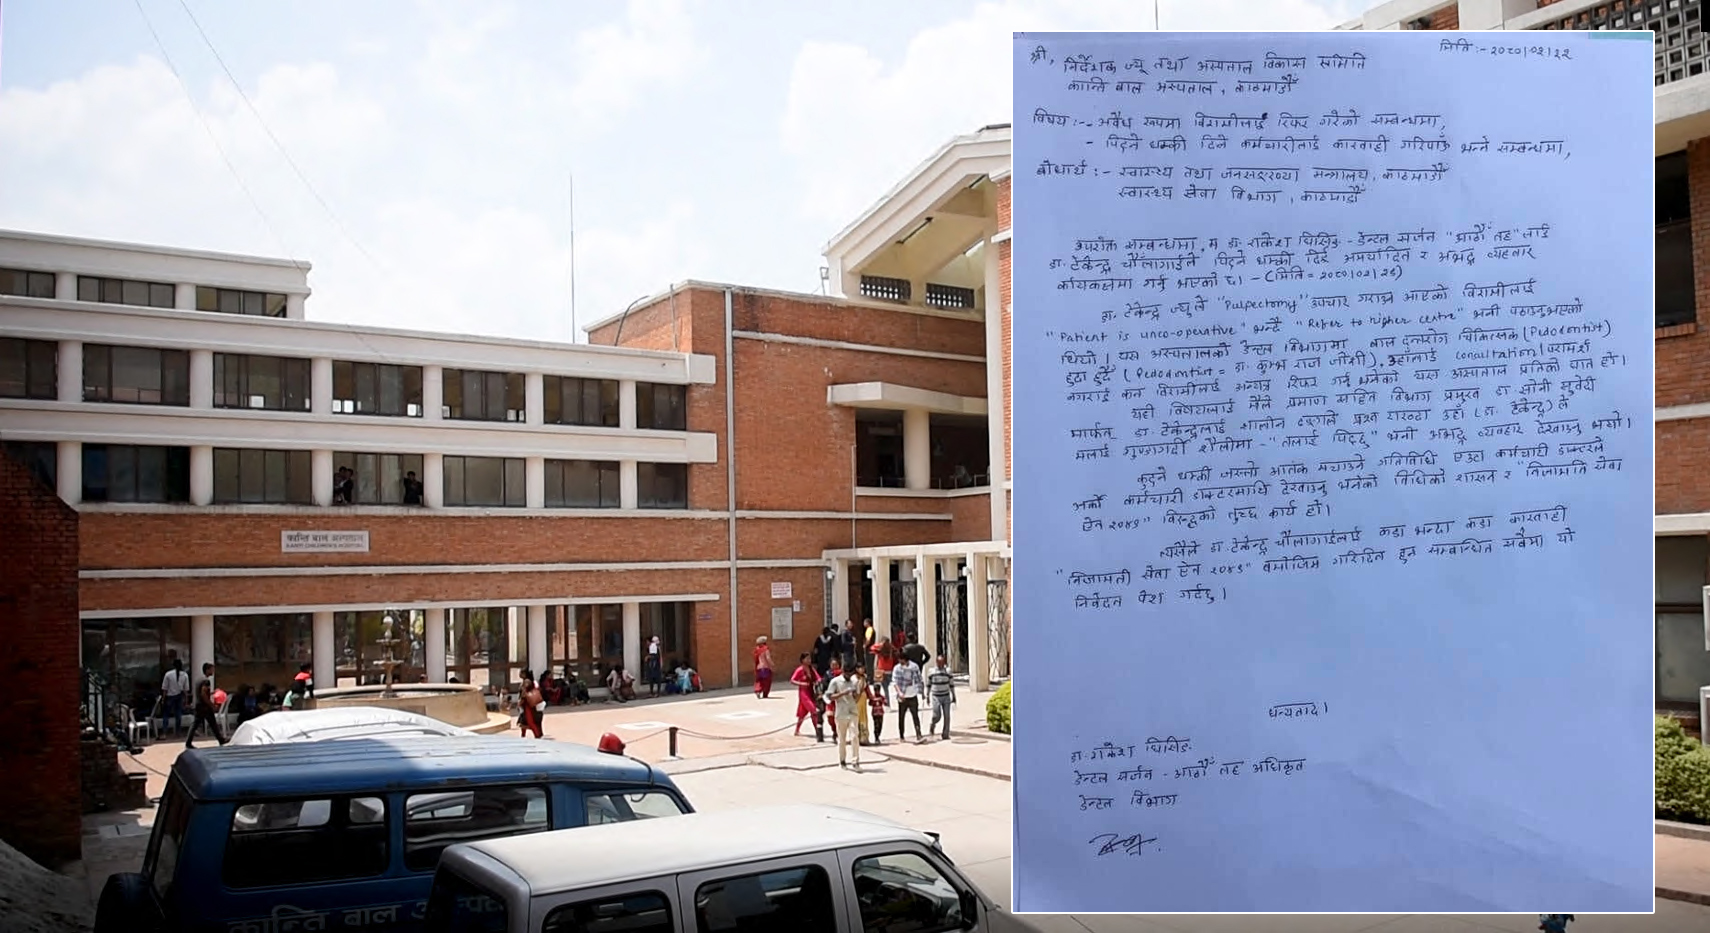 कान्ति बाल अस्पताल
KANTI CHILDREN'S HOSPITAL
कान्ति बाल
मिति:- २०८०।०२।२२
श्री,
निर्देशक ज्यू तथा अस्पताल विकास समिति
कान्ति बाल अस्पताल, काठमाडौँ
विषय:-- अवैध रूपमा बिरामीलाई रिफर गरेको सम्बन्धमा,
- पिट्ने धम्की दिने कर्मचारीलाई कारवाही गरिपाऊँ भन्ने सम्बन्धमा,
बोधार्थ:- स्वास्थ्य तथा जनसङ्ख्या मन्त्रालय, काठमाडौँ
स्वास्थ्य सेवा विभाग, काठमाडौँ
उपरोक्त सम्बन्धमा, म डा. राकेश घिसिङ - डेन्टल सर्जन "आठौँ तह" लाई
डा. टेकेन्द्र चौलागाईंले पिट्ने धम्की दिई अमर्यादित र अभद्र व्यवहार
कार्यकक्षमा गर्नु भएको छ। - (मिति = २०८०।०२।२८)
डा. टेकेन्द्र ज्यूले "Pulpectomy" उपचार गराउन आएको बिरामीलाई
"Patient is unco-operative" भन्दै "Refer to higher centre" भनी पठाउनुभएको
थियो। यस अस्पतालको डेन्टल विभागमा बाल दन्तरोग चिकित्सक (Pedodontist)
हुँदा हुँदै (Pedodontist = डा. कुम्भ राज जोशी), उहाँलाई consultation/परामर्श
नगराई कन बिरामीलाई अन्यत्र रिफर गर्नु भनेको यस अस्पताल प्रतिको घात हो।
यही विषयलाई मैले प्रमाण सहित विभाग प्रमुख डा. सोनी सुवेदी
मार्फत, डा. टेकेन्द्रलाई शालीन ढङ्गले प्रश्न राख्दा उहाँ (डा. टेकेन्द्र) ले
मलाई गुण्डागर्दी शैलीमा - "तलाई पिट्छु" भनी अभद्र व्यवहार देखाउनु भयो।
कुट्ने धम्की जस्तो आतंक मचाउने गतिविधि एउटा कर्मचारी डाक्टरले
अर्को कर्मचारी डाक्टरमाथि देखाउनु भनेको विधिको शासन र "निजामति सेवा
ऐन २०४९" विरुद्धको तुच्छ कार्य हो।
त्यसैले डा. टेकेन्द्र चौलागाईंलाई कडा भन्दा कडा कारवाही
"निजामती सेवा ऐन २०४९" बमोजिम गरिदिन हुन सम्बन्धित सबैमा यो
निवेदन पेश गर्दछु।
धन्यवाद।
डा. राकेश घिसिङ
डेन्टल सर्जन - आठौँ तह अधिकृत
डेन्टल विभाग